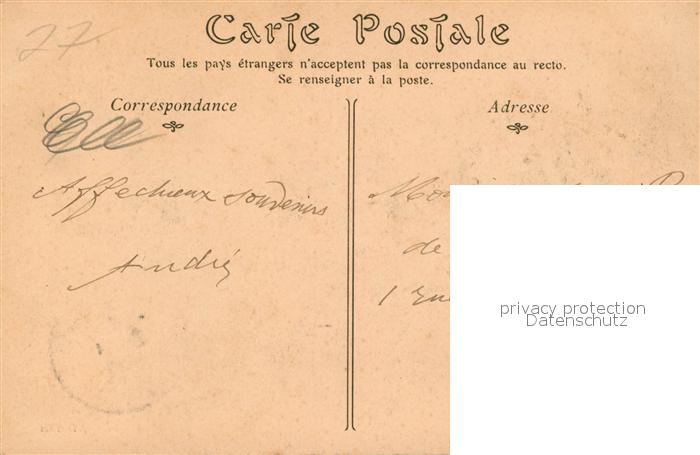 27
Carte Postale
Tous les pays étrangers n'acceptent pas la correspondance au recto.
Se renseigner à la poste.
Correspondance
Adresse
Affectueux souvenirs
André
de
1 rue
privacy protection
Datenschutz